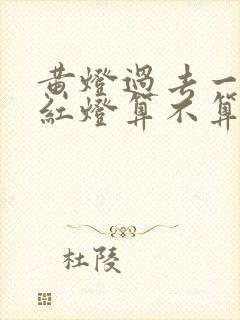 黄燈過去一
紅燈算不算
杜陵